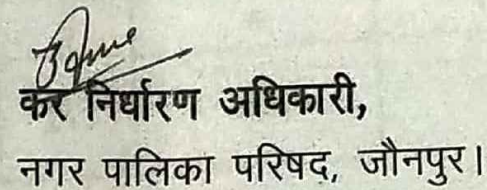 कर निर्धारण अधिकारी,
नगर पालिका परिषद, जौनपुर।